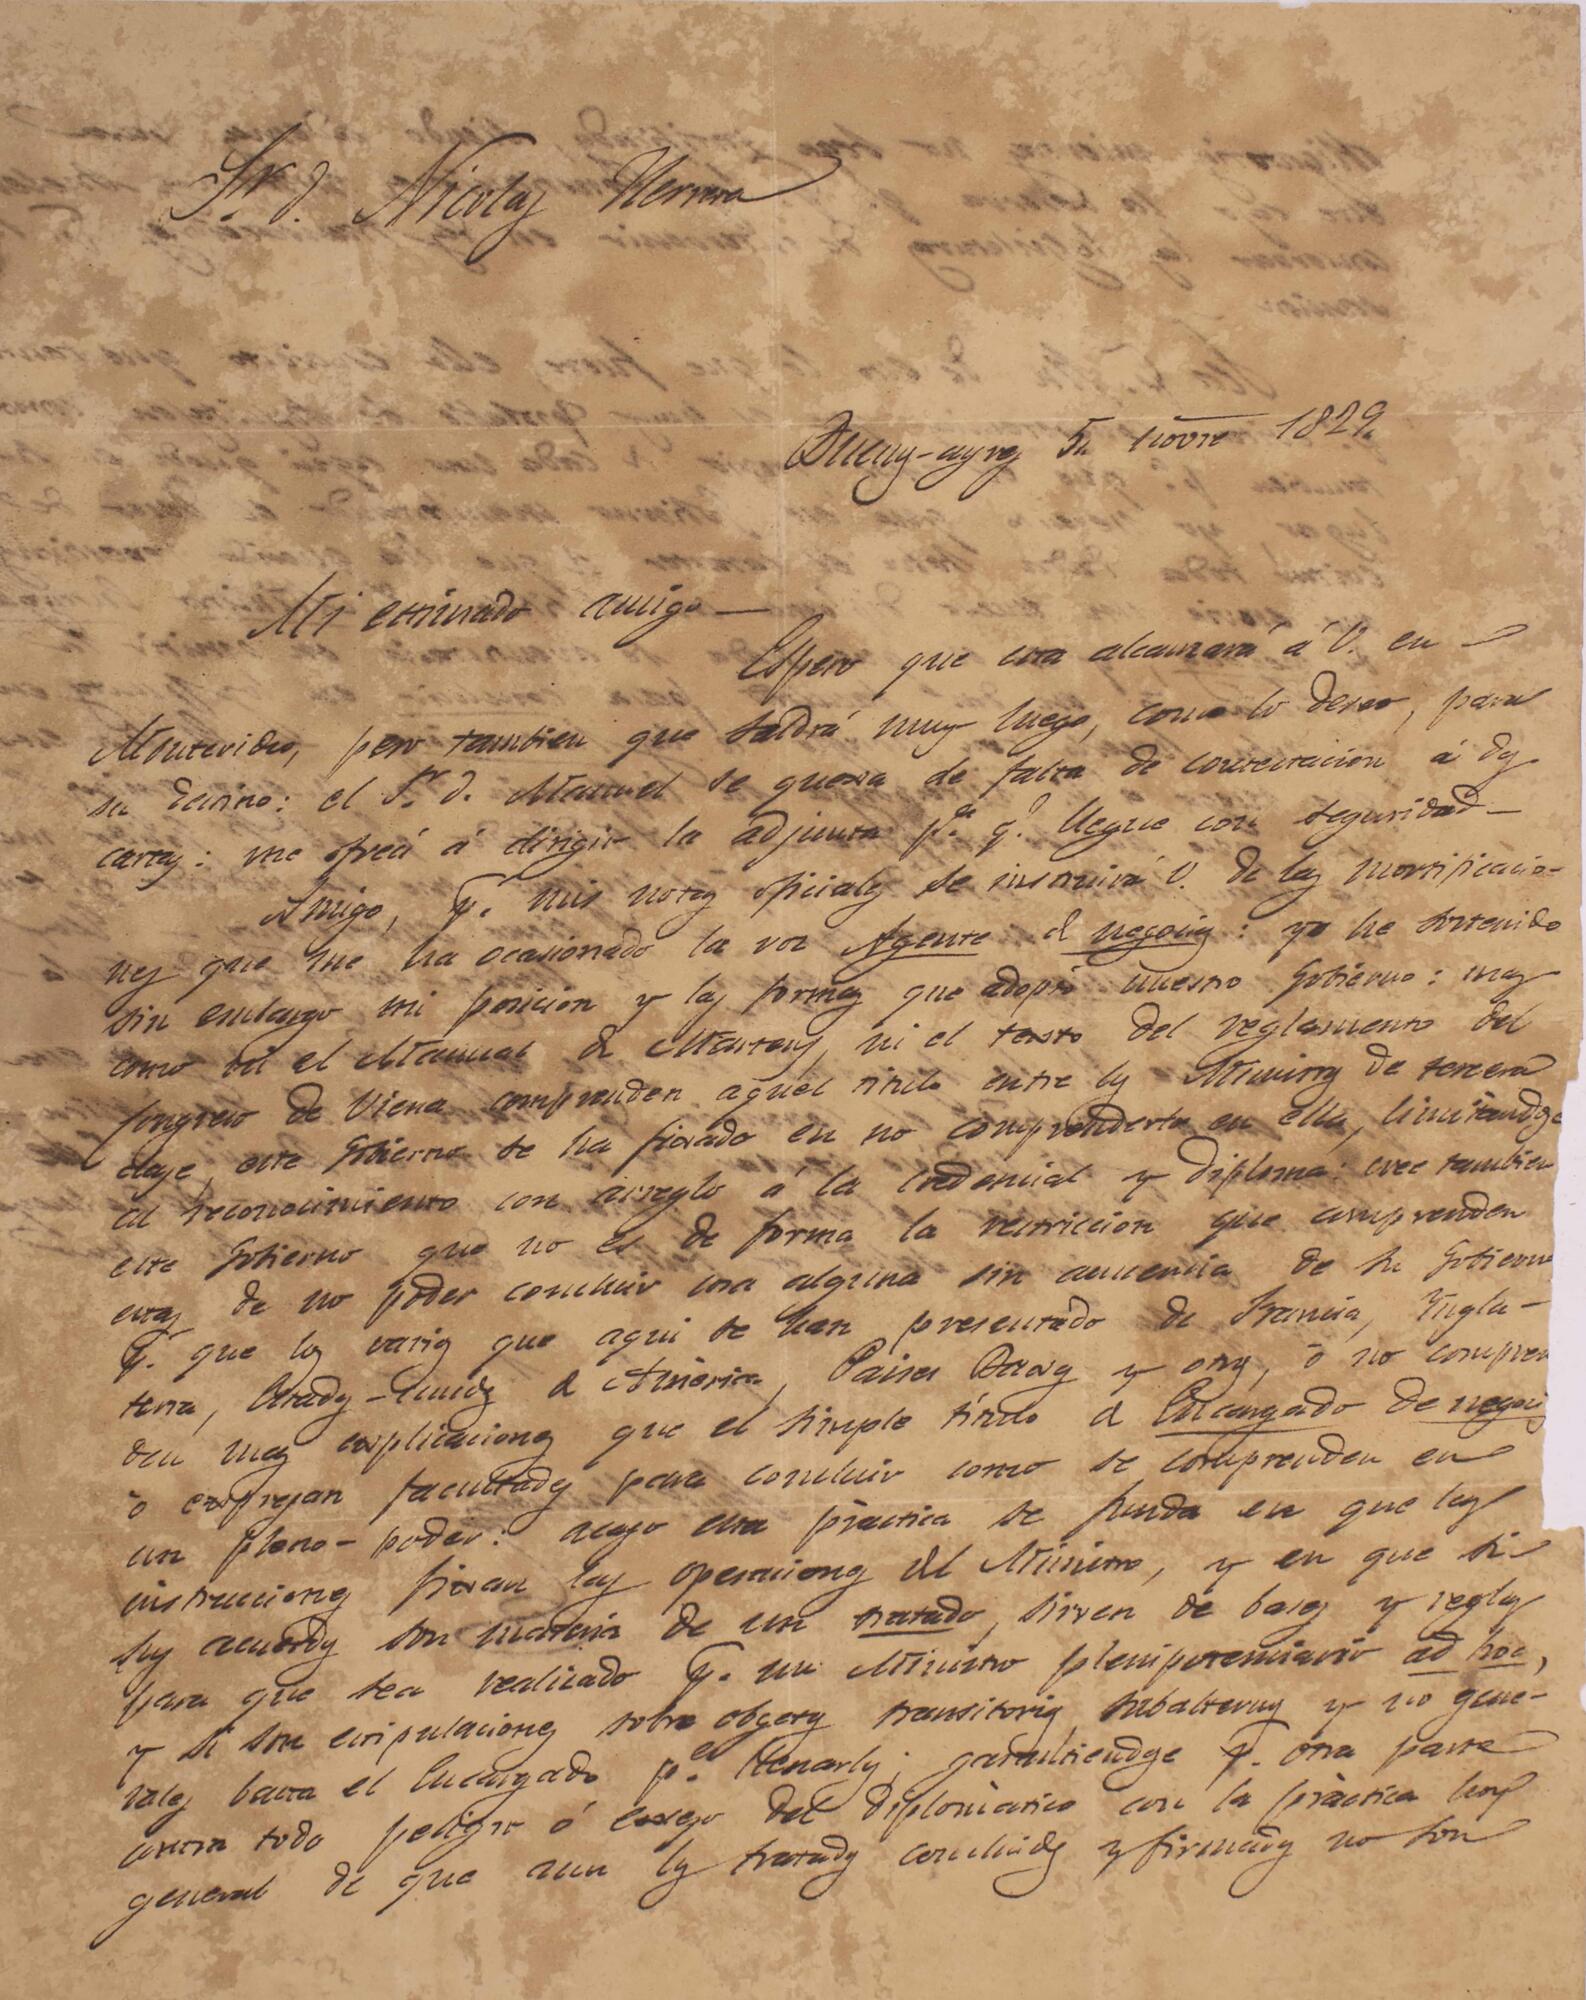 Sr. d. Nicolas Herrera
Buenos-ayres 5 Novre 1829.
Mi estimado amigo—
Espero que esta alcanzará á V. en
Montevideo, pero tambien que saldrá muy luego, como lo deseo, para
su destino: el Sr. d. Manuel se quexa de falta de contestacion á sus
cartas: me ofrecí á dirigir la adjunta pa. qe. llegue con seguridad—
Amigo, pr. mis notas oficiales se instruirá V. de las mortificacio-
nes que me ha ocasionado la voz Agente de negocios: yo he sostenido
sin embargo mi posicion y las formas que adoptó nuestro Gobierno: mas
como ni el Manual de Martens, ni el texto del reglamento del
Congreso de Viena comprenden aquel titulo entre los Ministros de tercera
clase, este Gobierno se ha fixado en no comprenderlo en ella, limitandose
al reconocimiento con arreglo á la credencial y diploma: cree tambien
este Gobierno que no es de forma la restriccion que comprenden
estas de no poder concluir cosa alguna sin anuencia de su Gobierno
pr. que los varios que aqui se han presentado de Francia, Ingla-
terra, Estados-Unidos de América, Paises Baxos y otros, ó no compren
den mas explicaciones que el simple título de Encargado de negocios
ó expresan facultades para concluir como se comprenden en
un pleno-poder: acaso esta práctica se funda en que las
instrucciones fixan las operaciones del Ministro, y en que si
sus acuerdos son materia de un tratado, sirven de bases y reglas
para que sea realizado pr. un Ministro plenipotenciario ad hoc,
y si son estipulaciones sobre objetos transitorios, subalternos y no gene-
rales basta el Encargado pa. llenarlos; garantiendose pr. otra parte
contra todo peligro ó del diplomático con la práctica hoy
general de que aun los tratados concluidos y firmados no son